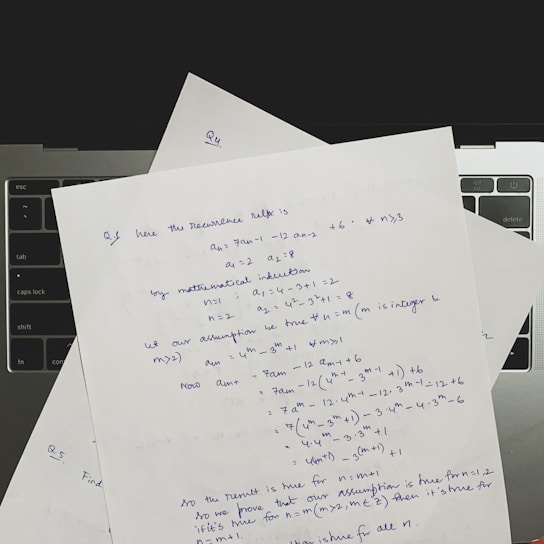 Q4
esc
tab
caps lock
shift
fn
con
delete
Q.3 here the recurrence relⁿ is
aₙ = 7aₙ₋₁ - 12 aₙ₋₂ + 6 . ∀ n≥3
a₁ = 2 a₂ = 8
by mathematical induction
n=1 ; a₁ = 4-3+1 = 2
n=2 a₂ = 4² - 3² + 1 = 8
let our assumption is true ∀ n = m (m is integer &
m>2) aₘ = 4ᵐ - 3ᵐ + 1 ∀ m≥1
Now aₘ₊₁ = 7aₘ - 12 aₘ₋₁ + 6
= 7aₘ - 12 (4ᵐ⁻¹ - 3ᵐ⁻¹ + 1) + 6
= 7aᵐ - 12. 4ᵐ⁻¹ - 12. 3ᵐ⁻¹ - 12 + 6
= 7(4ᵐ - 3ᵐ + 1) - 3.4ᵐ - 4.3ᵐ - 6
= 4.4ᵐ - 3.3ᵐ + 1
= 4(m+1) - 3^(m+1) + 1
so the result is true for n = m+1
so we prove that our assumption is true for n=1,2
if it's true for n=m (m>2, m∈Z) then it's true for
n=m+1.
is true for all n.
Q.5
Find